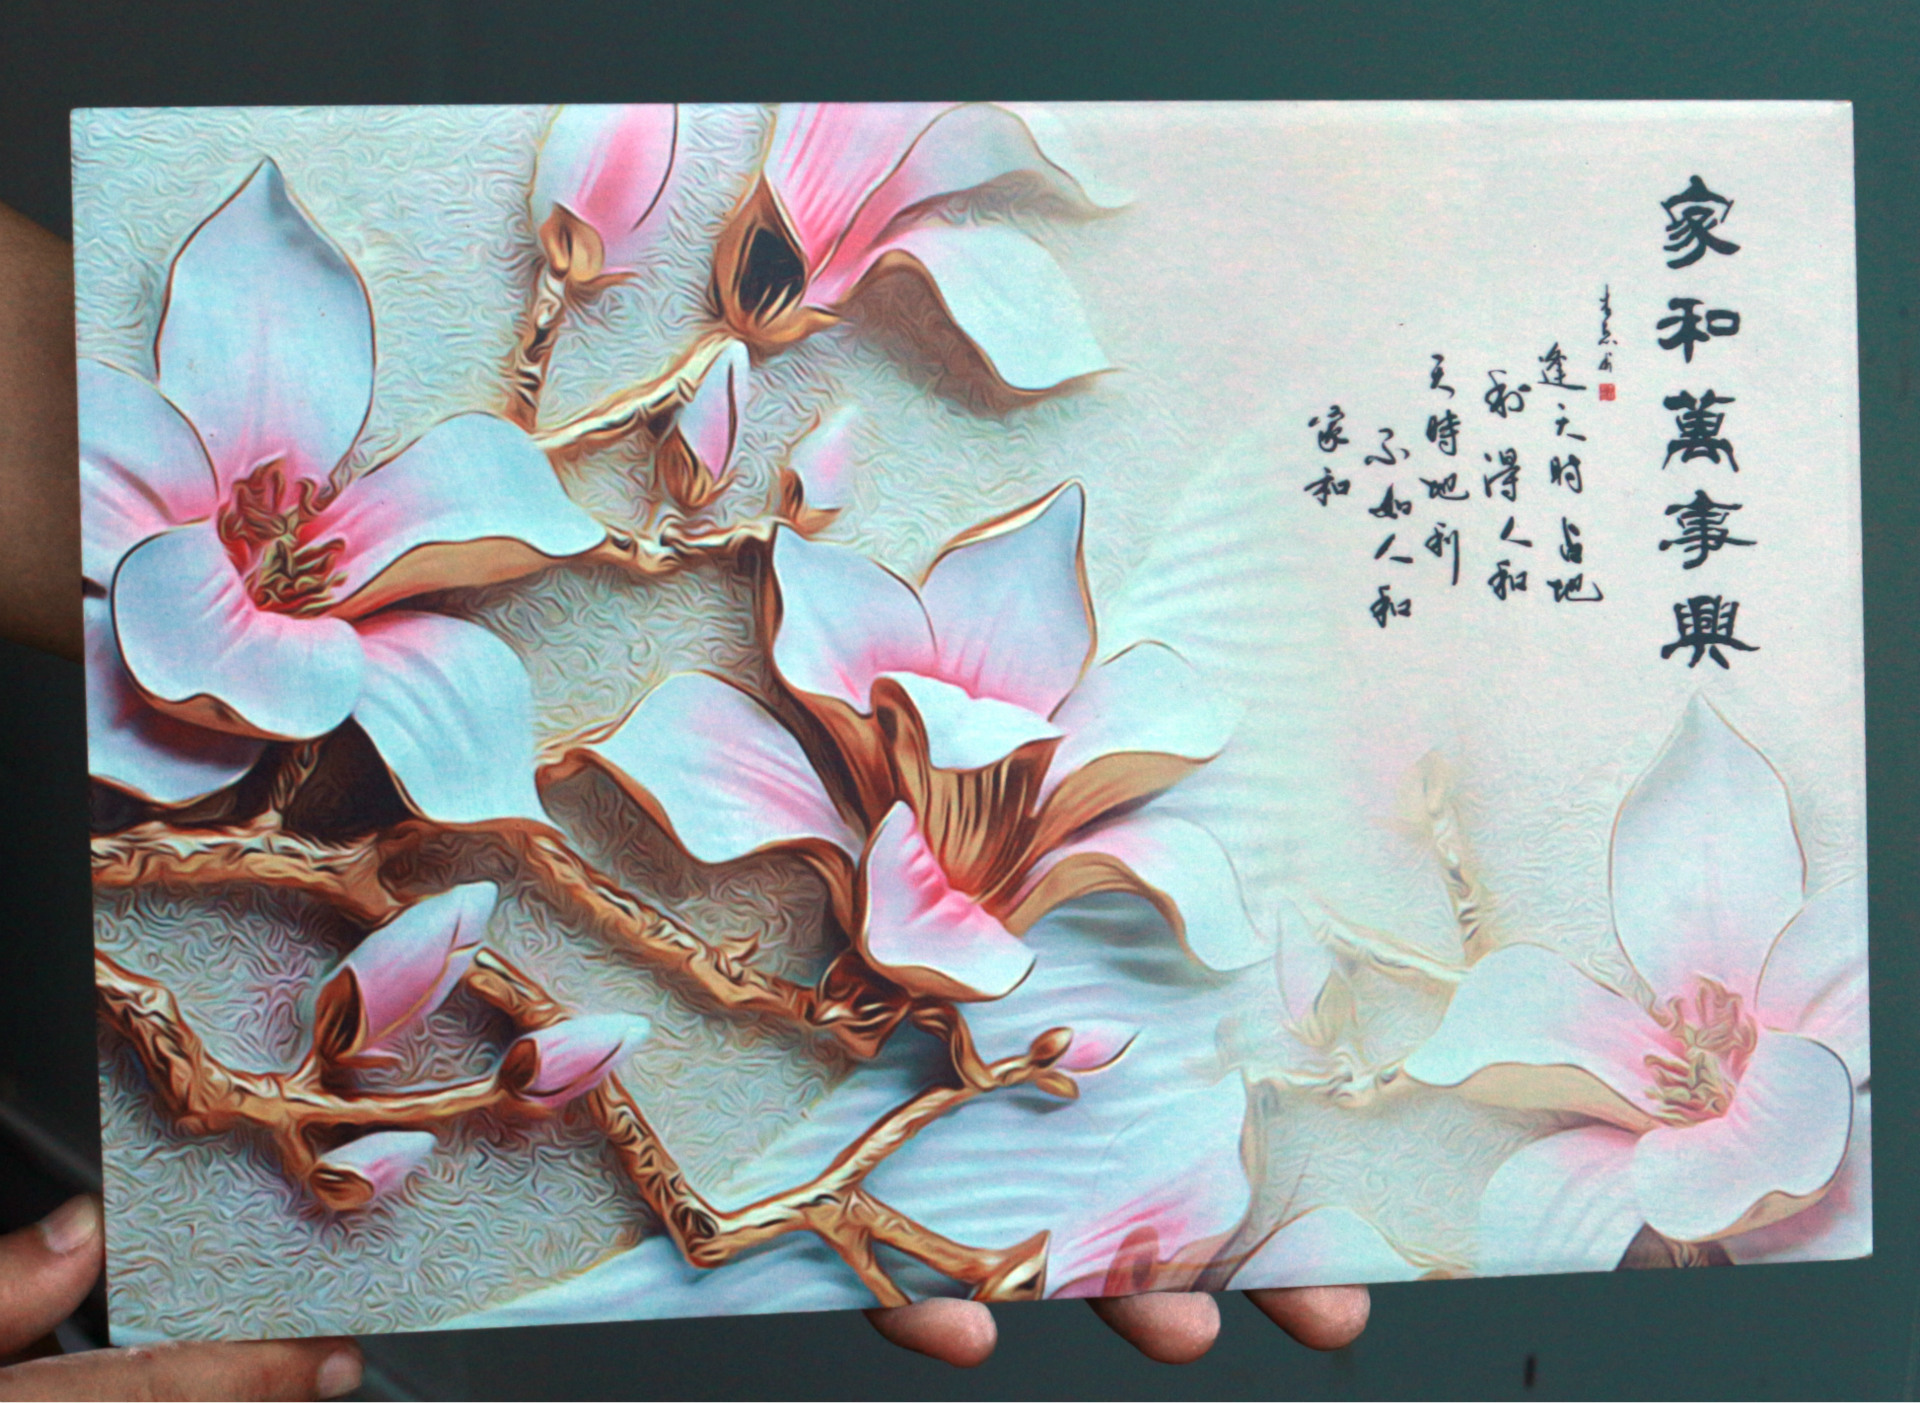 家和萬事興
逢天时占地
利得人和
天時地利
不如人和
家和